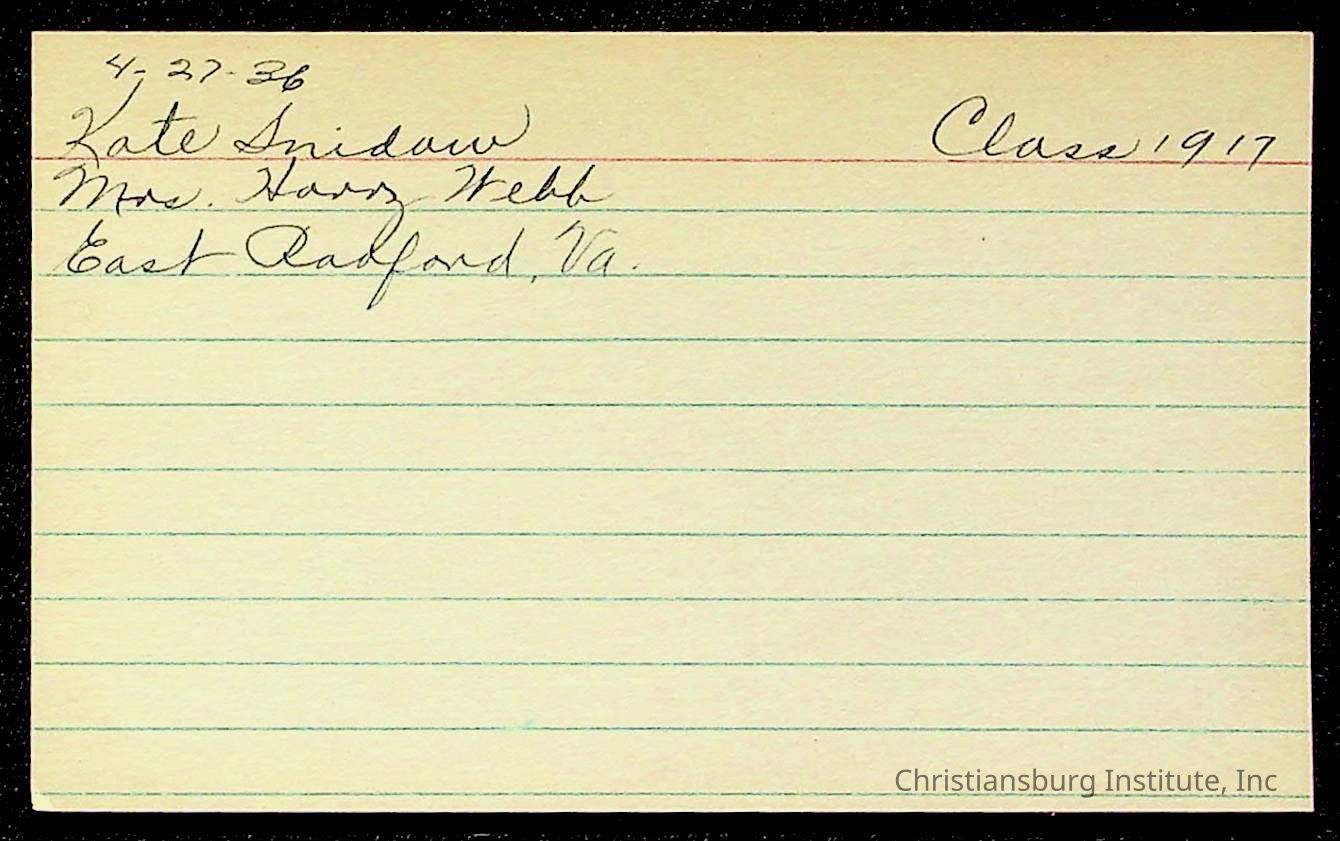 4-27-36
Kate Snidow Class 1917
Mrs. Harry Webb
East Radford, Va.
Christiansburg Institute, Inc